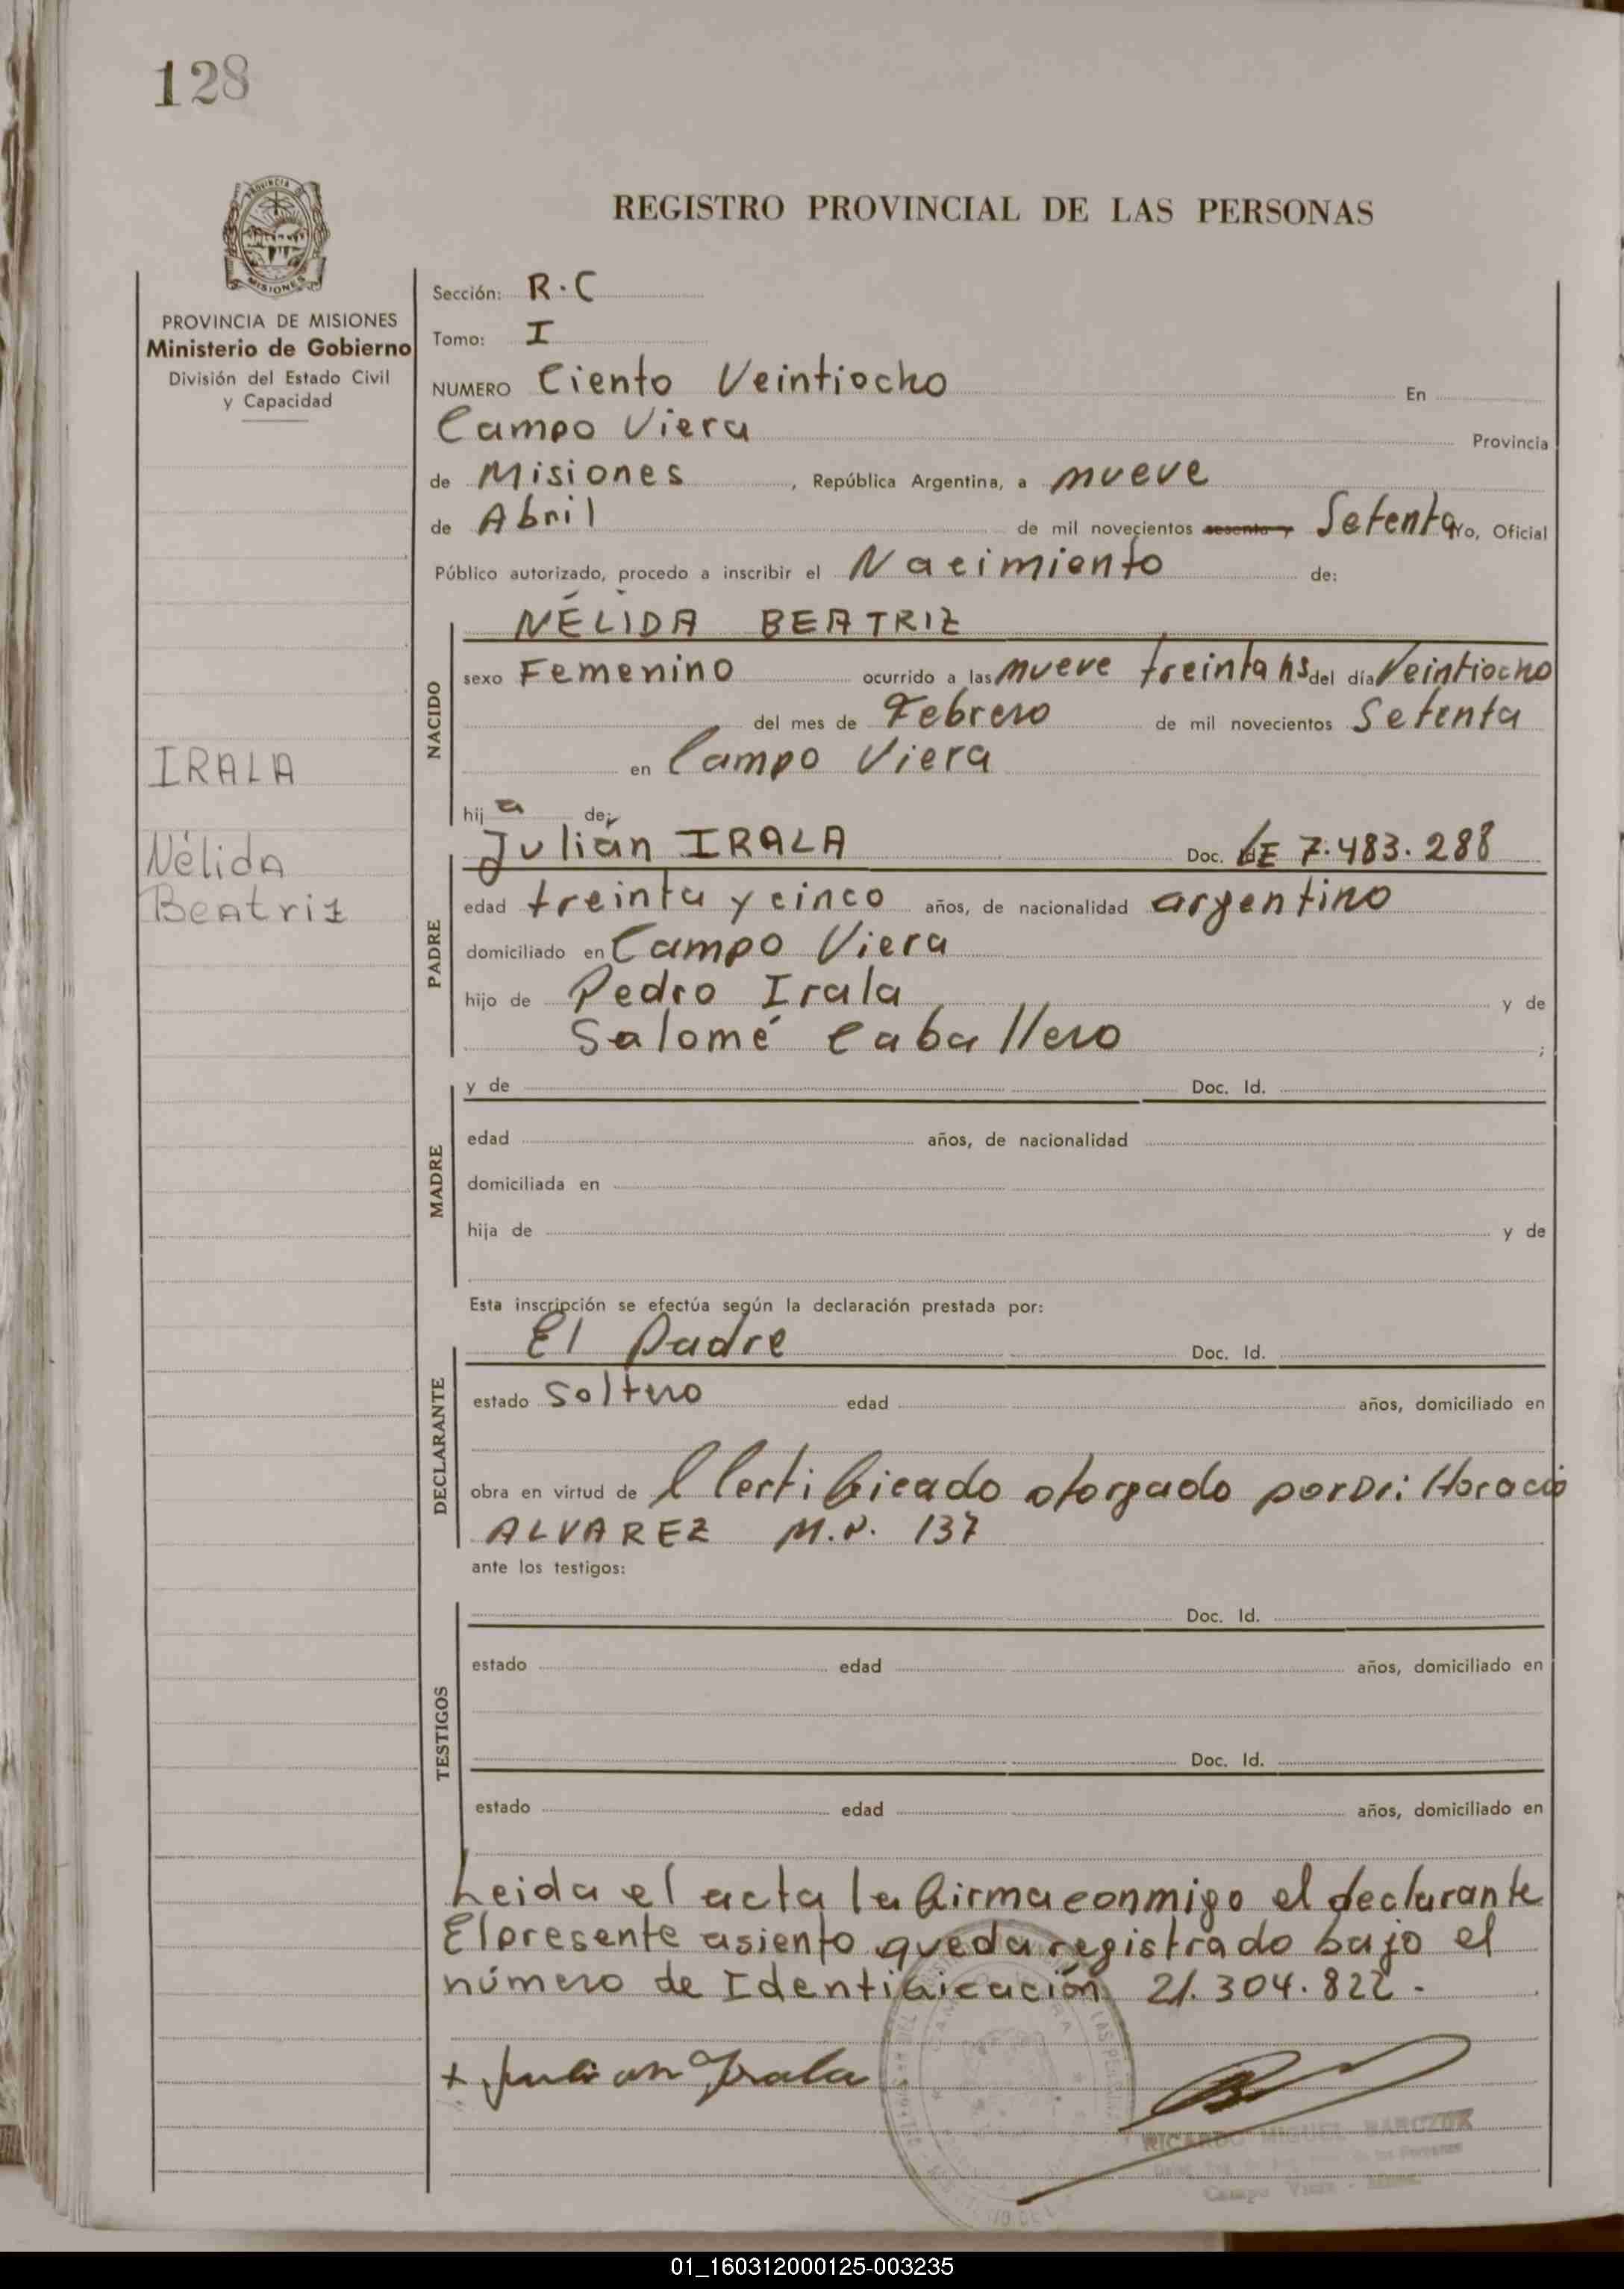 128
PROVINCIA DE
MISIONES
REGISTRO PROVINCIAL DE LAS PERSONAS
PROVINCIA DE MISIONES
Ministerio de Gobierno
División del Estado Civil
y Capacidad
IRALA
Nélida
Beatriz
Sección: R.C
Tomo: I
NUMERO Ciento Veintiocho En
Campo Viera Provincia
de Misiones, República Argentina, a nueve
de Abril de mil novecientos sesenta y Setenta Yo, Oficial
Público autorizado, procedo a inscribir el Nacimiento de:
NACIDO
NÉLIDA BEATRIZ
sexo Femenino ocurrido a las nueve treinta hs del día Veintiocho
del mes de Febrero de mil novecientos Setenta
en Campo Viera
hija de:
PADRE
Julián IRALA Doc. LE 7.483.288
edad treinta y cinco años, de nacionalidad argentino
domiciliado en Campo Viera
hijo de Pedro Irala y de
Salomé Caballero ;
MADRE
y de Doc. Id.
edad años, de nacionalidad
domiciliada en
hija de y de
Esta inscripción se efectúa según la declaración prestada por:
DECLARANTE
El Padre Doc. Id.
estado soltero edad años, domiciliado en
obra en virtud de l Certificado otorgado por Dr: Horacio
ALVAREZ M.P. 137
ante los testigos:
TESTIGOS
Doc. Id.
estado edad años, domiciliado en
Doc. Id.
estado edad años, domiciliado en
Leida el acta la firma conmigo el declarante
El presente asiento queda registrado bajo el
número de Identificación 21.304.822.-
+ Julian Irala
RICARDO MIGUEL BARCZUK
Campo Viera - Mnes.
01_160312000125-003235